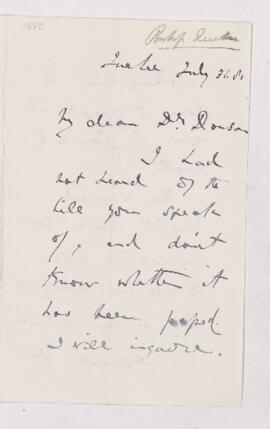 1880
Bishop Quebec
Quebec July 31. 80
My dear Dr. Dawson
I had
not heard of the
bill you speak
of, and don't
know whether it
has been passed.
I will inquire.